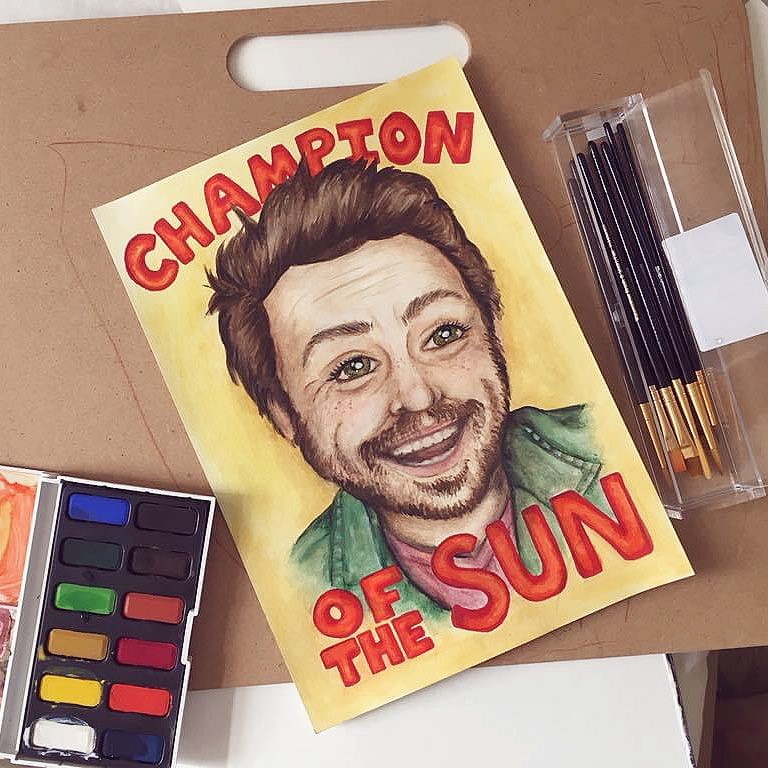 CHAMPION
OF
THE
SUN